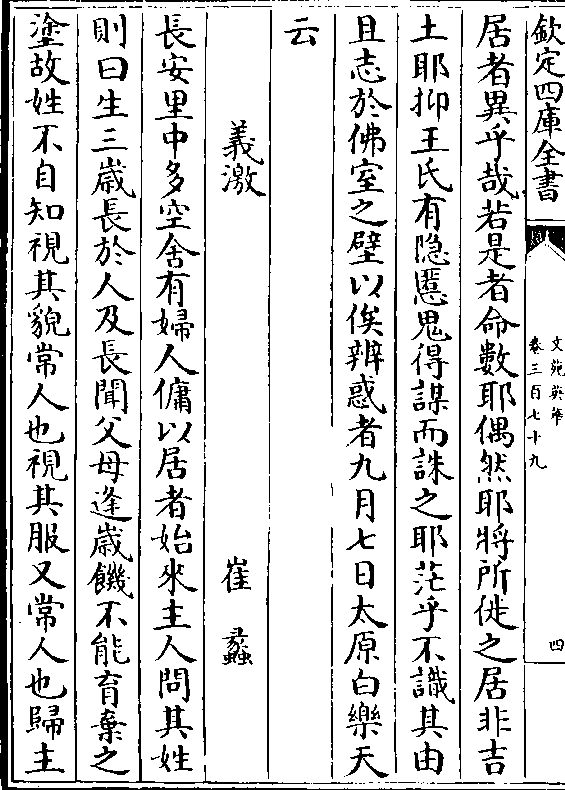 欽定四庫全書
文苑英華
卷三百七十九
四
居者異乎哉若是者命數耶偶然耶將所徙之居非吉
土耶抑王氏有隐慝鬼得謀而誅之耶茫乎不識其由
且志於佛室之壁以俟辨惑者九月七日太原白樂天
云
義激
崔蠡
長安里中多空舍有婦人傭以居者始來主人問其姓
則曰生三歳長於人及長聞父母逢歳饑不能育棄之
塗故姓不自知視其貌常人也視其服又常人也歸主